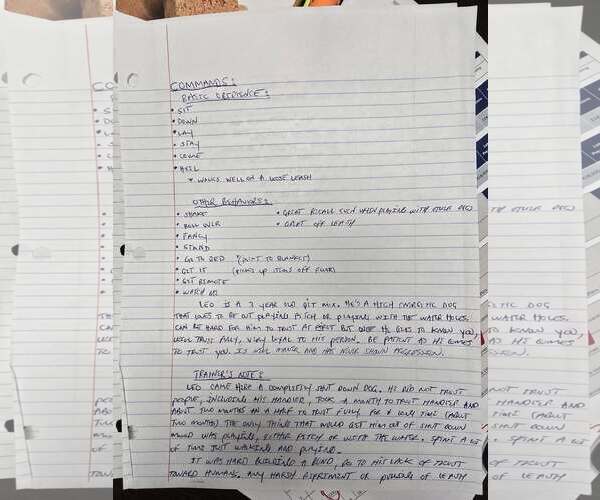 COMMANDS:
BASIC OBEDIENCE:
• SIT
• DOWN
• LAY
• STAY
• COME
• HEEL
* WALKS WELL ON A LOOSE LEASH
OTHER BEHAVIORS:
• SHAKE • GREAT RECALL EVEN WHEN PLAYING WITH OTHER DOGS
• ROLL OVER • GREAT OFF LEASH
• FANCY
• STAND
• GO TO BED (POINT TO BLANKET)
• GET IT (PICKS UP ITEMS OFF FLOOR)
• GET REMOTE
• WATCH ME
LEO IS A 3 YEAR OLD PIT MIX. HE'S A HIGH ENERGETIC DOG
THAT LOVES TO BE OUT PLAYING FETCH OR PLAYING WITH THE WATER HOLES.
CAN BE HARD FOR HIM TO TRUST AT FIRST BUT ONCE HE GETS TO KNOW YOU,
HE'LL TRUST FULLY, VERY LOYAL TO HIS PERSON. BE PATIENT AS HE COMES
TO TRUST YOU. IS WELL MANNER AND HAS NEVER SHOWN AGGRESSION.
TRAINER'S NOTE:
LEO CAME HERE A COMPLETELY SHUT DOWN DOG. HE DID NOT TRUST
PEOPLE, INCLUDING HIS HANDLER, TOOK A MONTH TO TRUST HANDLER AND
ABOUT TWO MONTHS IN A HALF TO TRUST FULLY. FOR A LONG TIME (ABOUT
TWO MONTHS) THE ONLY THING THAT WOULD GET HIM OUT OF SHUT DOWN
MOOD WAS PLAYING, EITHER FETCH OR WITH THE WATER. SPENT A LOT
OF TIME JUST WALKING AND PLAYING.
IT WAS HARD BUILDING A BOND, DO TO HIS LACK OF TRUST
TOWARD HUMANS. ANY HARSH OR PULLING OF LEASH